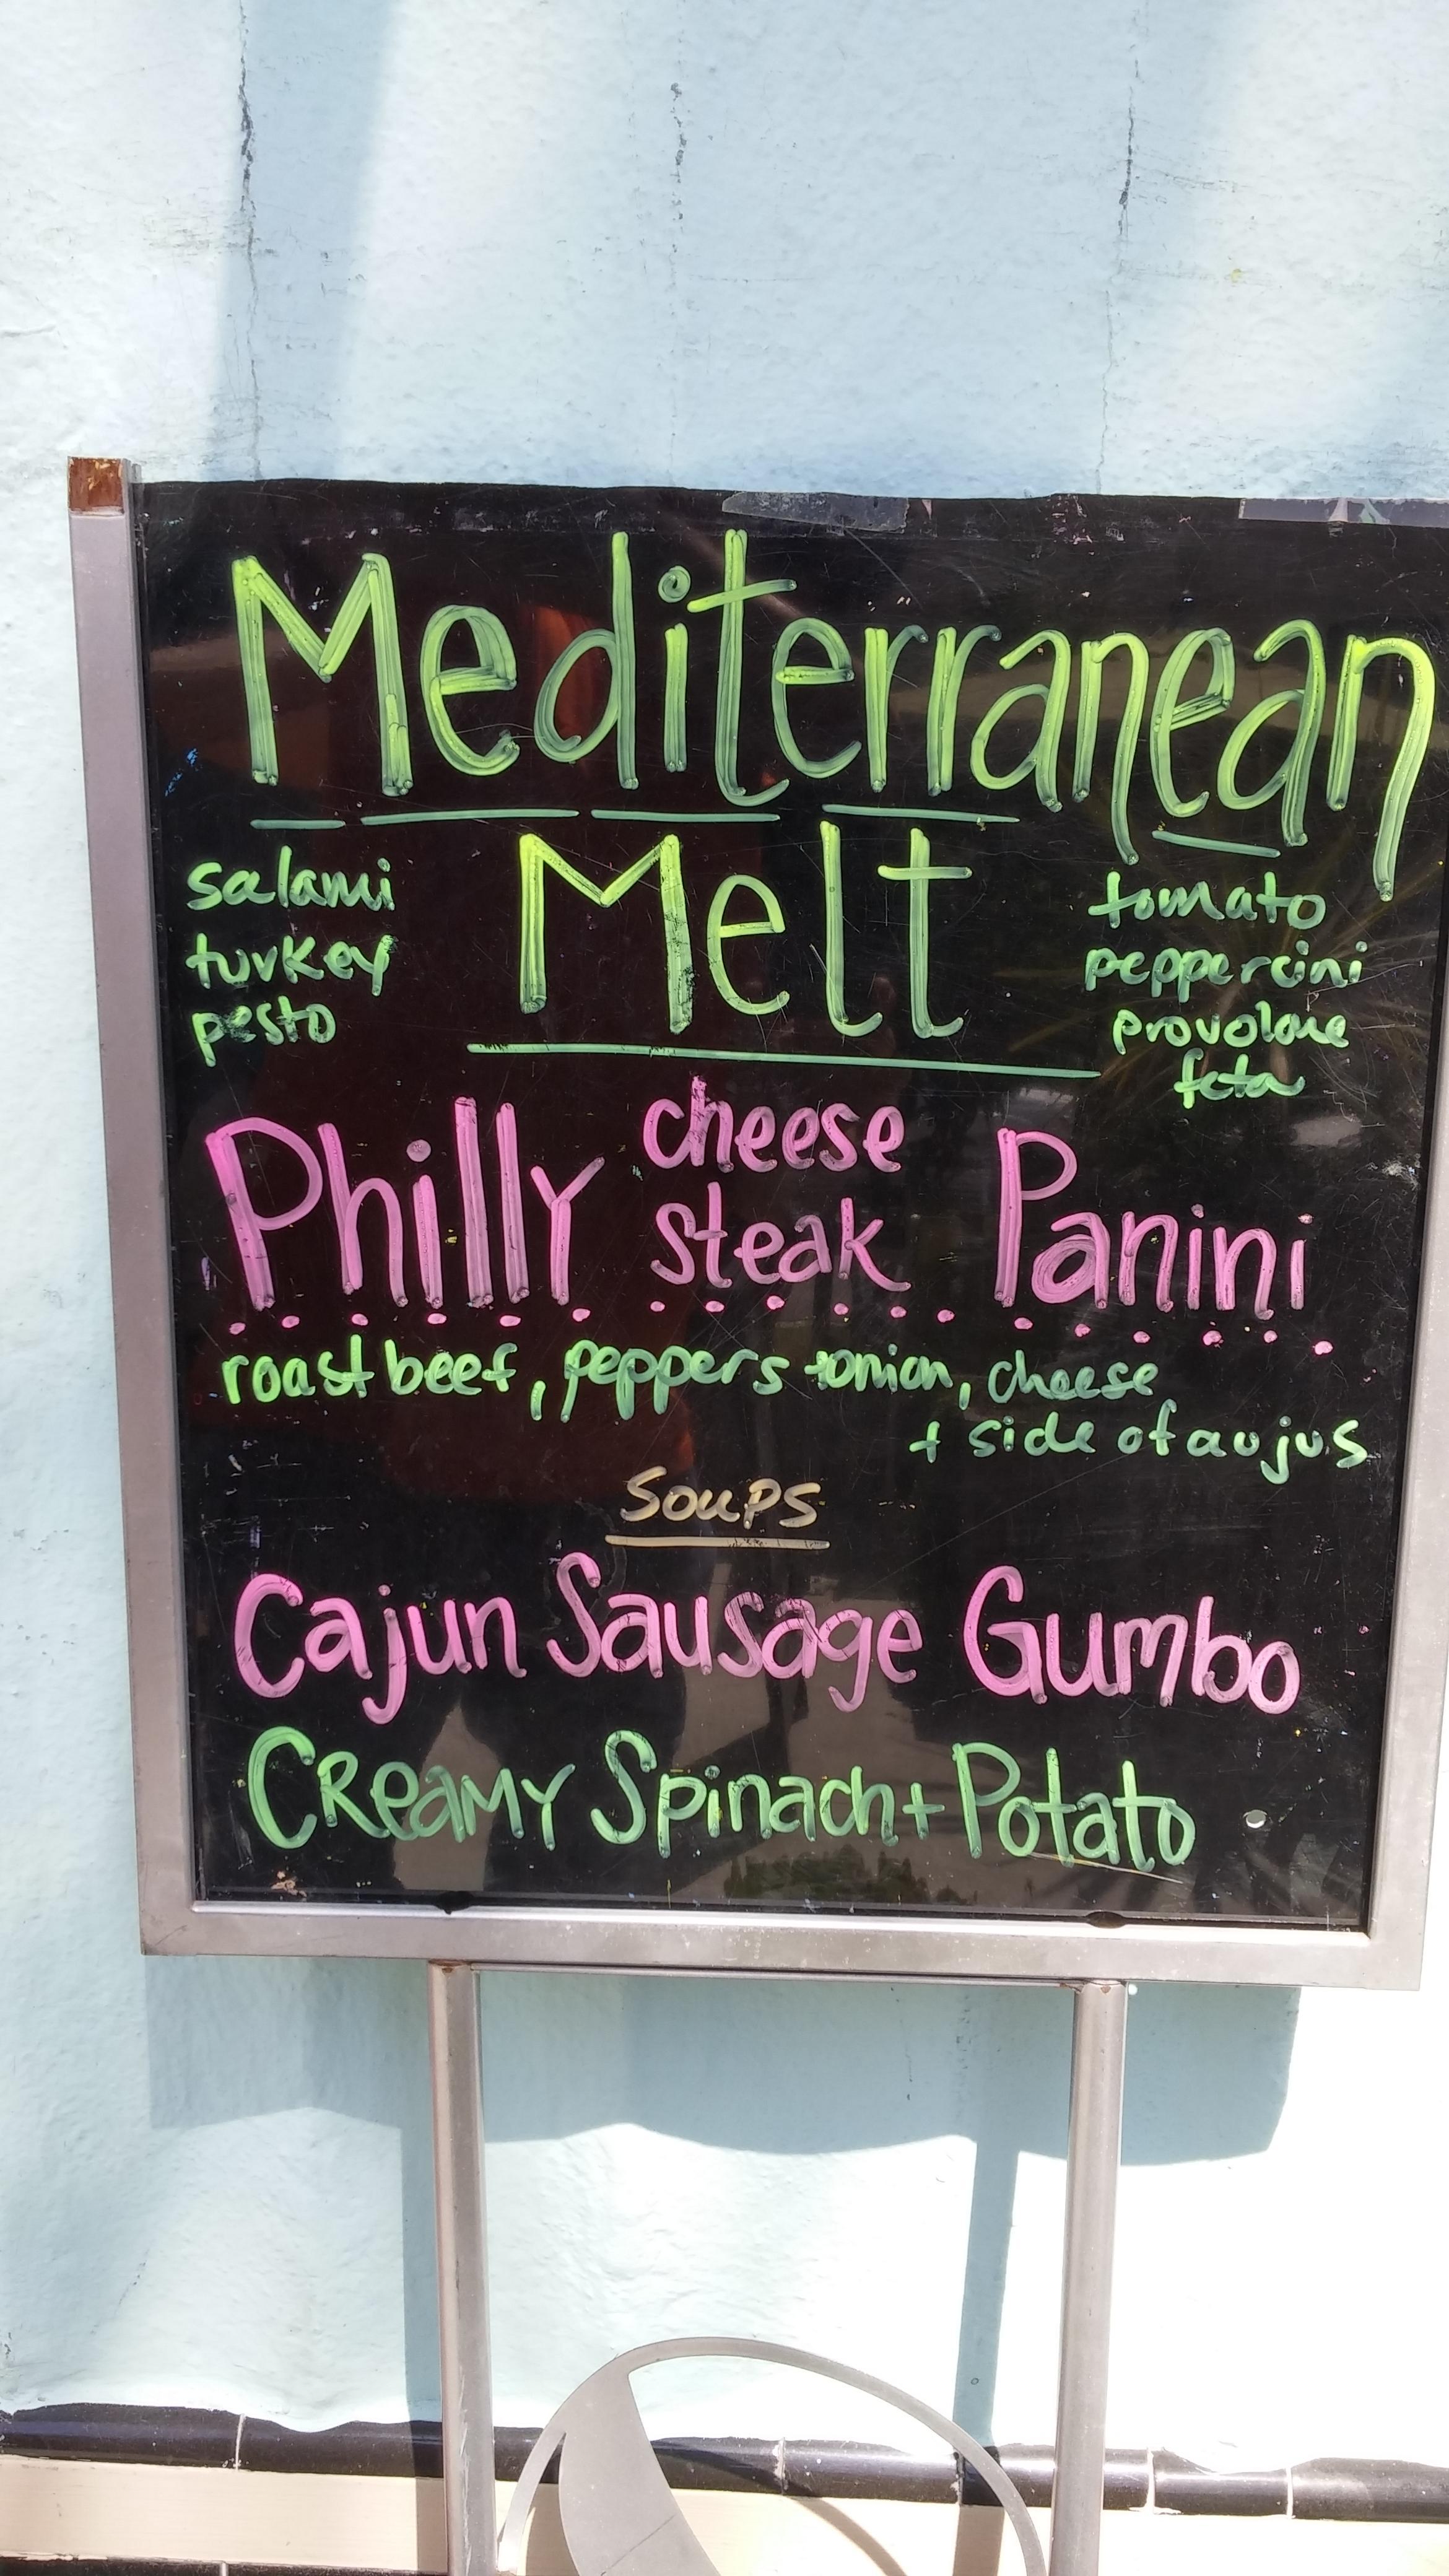 Mediterranean
Melt
salami
turkey
pesto
tomato
peppercini
provolone
feta
Philly cheese steak Panini
roast beef, peppers + onion, cheese
+ side of aujus
Soups
Cajun Sausage Gumbo
Creamy Spinach + Potato